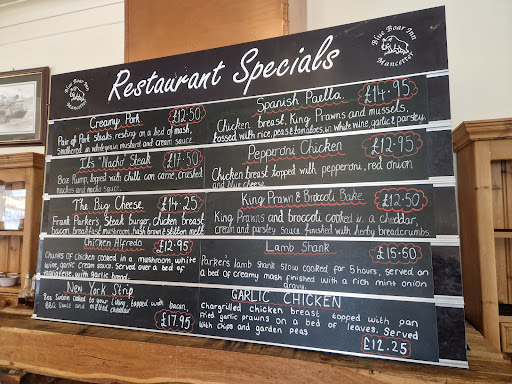 Restaurant Specials
Blue Boar Inn
Mancetter
Blue Boar Inn
Mancetter
Creamy Pork £12.50
Pair of Pork Steaks, resting on a bed of mash,
Smothered in wholegrain mustard and cream sauce
It's "Nacho" Steak £17.50
8oz Rump, topped with chilli con carne, crushed
nachos and nacho sauce.
The Big Cheese £14.25
Frank Parkers Steak burger, chicken breast
bacon breakfast mushroom, hash brown & stilton melt
Chicken Alfredo £12.95
Chunks of chicken cooked in a mushroom, white
wine, garlic cream sauce. Served over a bed of
with garlic bread
New York Strip
8oz Sirloin cooked to your liking, topped with bacon
BBQ sauce and melted cheddar £17.95
Spanish Paella £14.95
Chicken breast, King Prawns and mussels,
tossed with rice, peas & tomatoes, in white wine, garlic & parsley.
Pepperoni Chicken £12.95
Chicken breast topped with pepperoni, red onion
and blue cheese
King Prawn & Broccoli Bake £12.50
King Prawns and broccoli cooked in a cheddar,
cream and parsley sauce finished with herby breadcrumbs
Lamb Shank £15.50
Parkers lamb shank slow cooked for 5 hours, served on
a bed of creamy mash finished with a rich mint onion
gravy.
GARLIC CHICKEN
Chargrilled chicken breast topped with pan
fried garlic prawns on a bed of leaves. Served
with chips and garden peas
£12.25